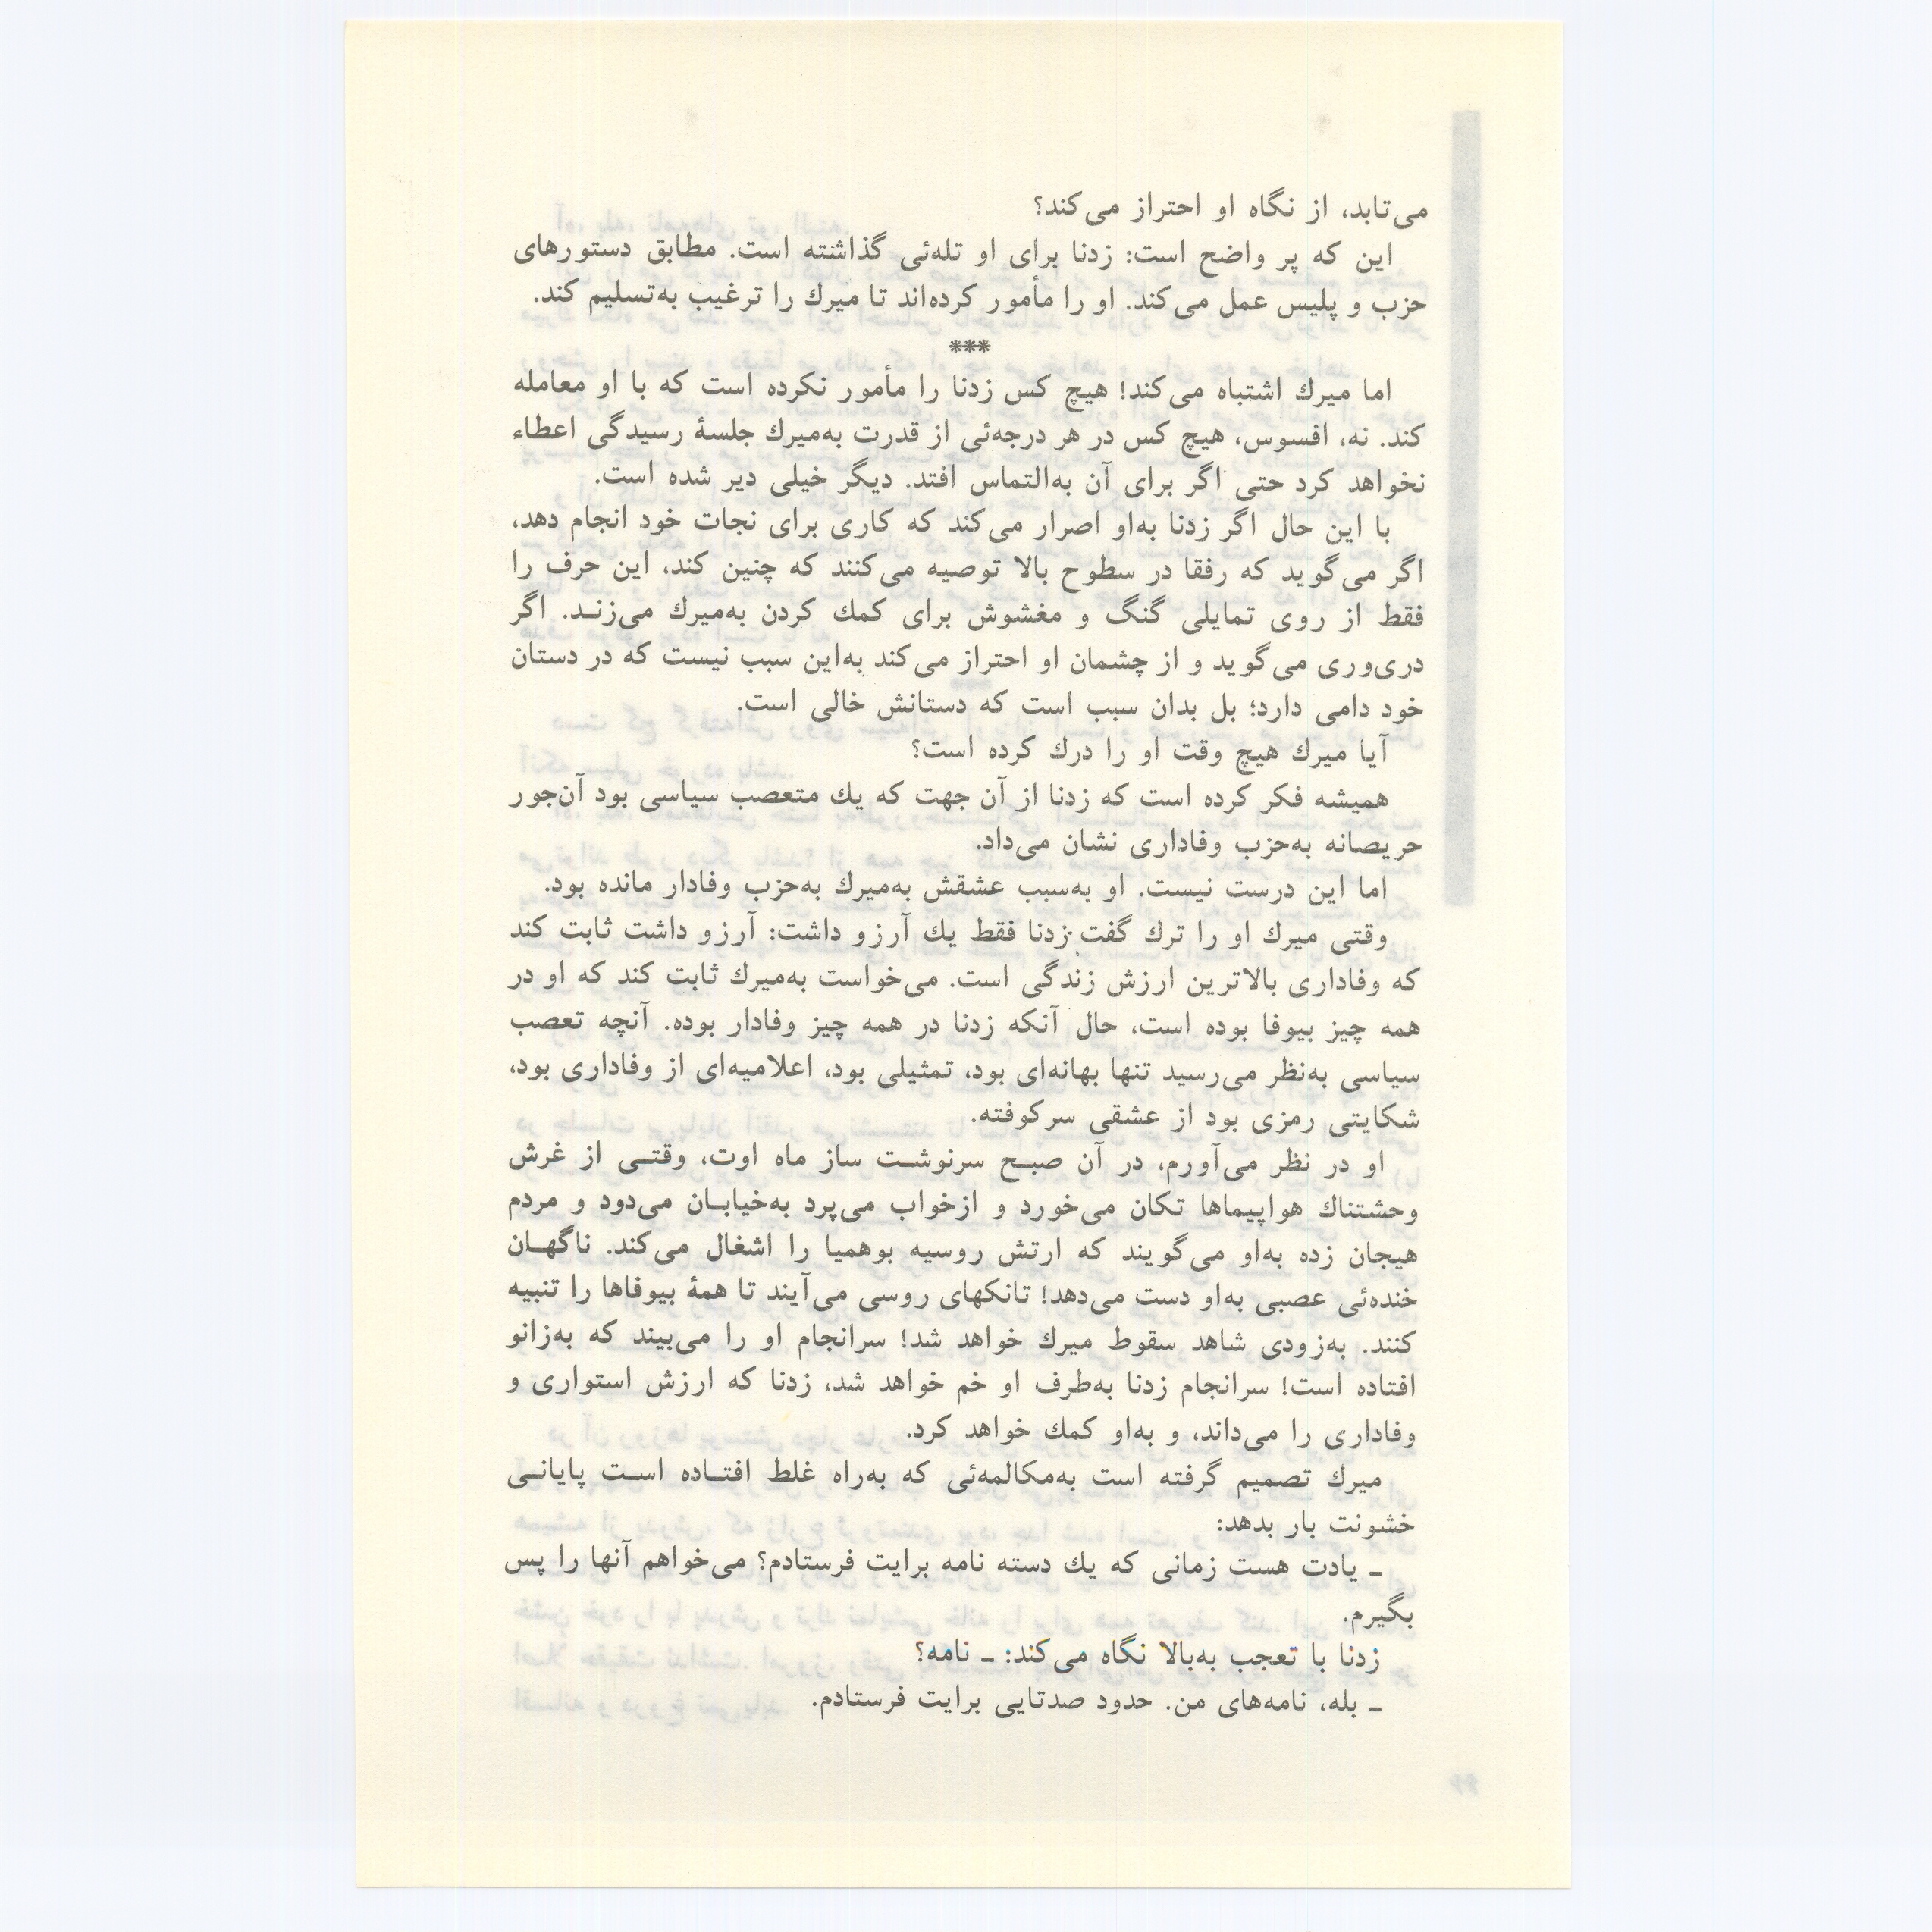 می‌تابد، از نگاه او احتراز می‌کند؟
این که پر واضح است: زدنا برای او تله‌ئی گذاشته است. مطابق دستورهای
حزب و پلیس عمل می‌کند. او را مأمور کرده‌اند تا میرك را ترغیب به‌تسلیم کند.
***
اما میرك اشتباه می‌کند! هیچ کس زدنا را مأمور نکرده است که با او معامله
کند. نه، افسوس، هیچ کس در هر درجه‌ئی از قدرت به‌میرك جلسۀ رسیدگی اعطاء
نخواهد کرد حتی اگر برای آن به‌التماس افتد. دیگر خیلی دیر شده است.
با این حال اگر زدنا به‌او اصرار می‌کند که کاری برای نجات خود انجام دهد،
اگر می‌گوید که رفقا در سطوح بالا توصیه می‌کنند که چنین کند، این حرف را
فقط از روی تمایلی گنگ و مغشوش برای کمك کردن به‌میرك می‌زنـد. اگر
دری‌وری می‌گوید و از چشمان او احتراز می‌کند به‌این سبب نیست که در دستان
خود دامی دارد؛ بل بدان سبب است که دستانش خالی است.
آیا میرك هیچ وقت او را درك کرده است؟
همیشه فکر کرده است که زدنا از آن جهت که یك متعصب سیاسی بود آن‌جور
حریصانه به‌حزب وفاداری نشان می‌داد.
اما این درست نیست. او به‌سبب عشقش به‌میرك به‌حزب وفادار مانده بود.
وقتی میرك او را ترك گفت زدنا فقط یك آرزو داشت: آرزو داشت ثابت کند
که وفاداری بالاترین ارزش زندگی است. می‌خواست به‌میرك ثابت کند که او در
همه چیز بیوفا بوده است، حال آنکه زدنا در همه چیز وفادار بوده. آنچه تعصب
سیاسی به‌نظر می‌رسید تنها بهانه‌ای بود، تمثیلی بود، اعلامیه‌ای از وفاداری بود،
شکایتی رمزی بود از عشقی سرکوفته.
او در نظر می‌آورم، در آن صبـح سرنوشـت ساز ماه اوت، وقتـی از غرش
وحشتناك هواپیماها تکان می‌خورد و ازخواب می‌پرد به‌خیابـان می‌دود و مردم
هیجان زده به‌او می‌گویند که ارتش روسیه بوهمیا را اشغال می‌کند. ناگهـان
خنده‌ئی عصبی به‌او دست می‌دهد! تانکهای روسی می‌آیند تا همۀ بیوفاها را تنبیه
کنند. به‌زودی شاهد سقوط میرك خواهد شد! سرانجام او را می‌بیند که به‌زانو
افتاده است! سرانجام زدنا به‌طرف او خم خواهد شد، زدنا که ارزش استواری و
وفاداری را می‌داند، و به‌او کمك خواهد کرد.
میرك تصمیم گرفته است به‌مکالمه‌ئی که به‌راه غلط افتـاده اسـت پایانـی
خشونت بار بدهد:
ـ یادت هست زمانی که یك دسته نامه برایت فرستادم؟ می‌خواهم آنها را پس
بگیرم.
زدنا با تعجب به‌بالا نگاه می‌کند: ـ نامه؟
ـ بله، نامه‌های من. حدود صدتایی برایت فرستادم.